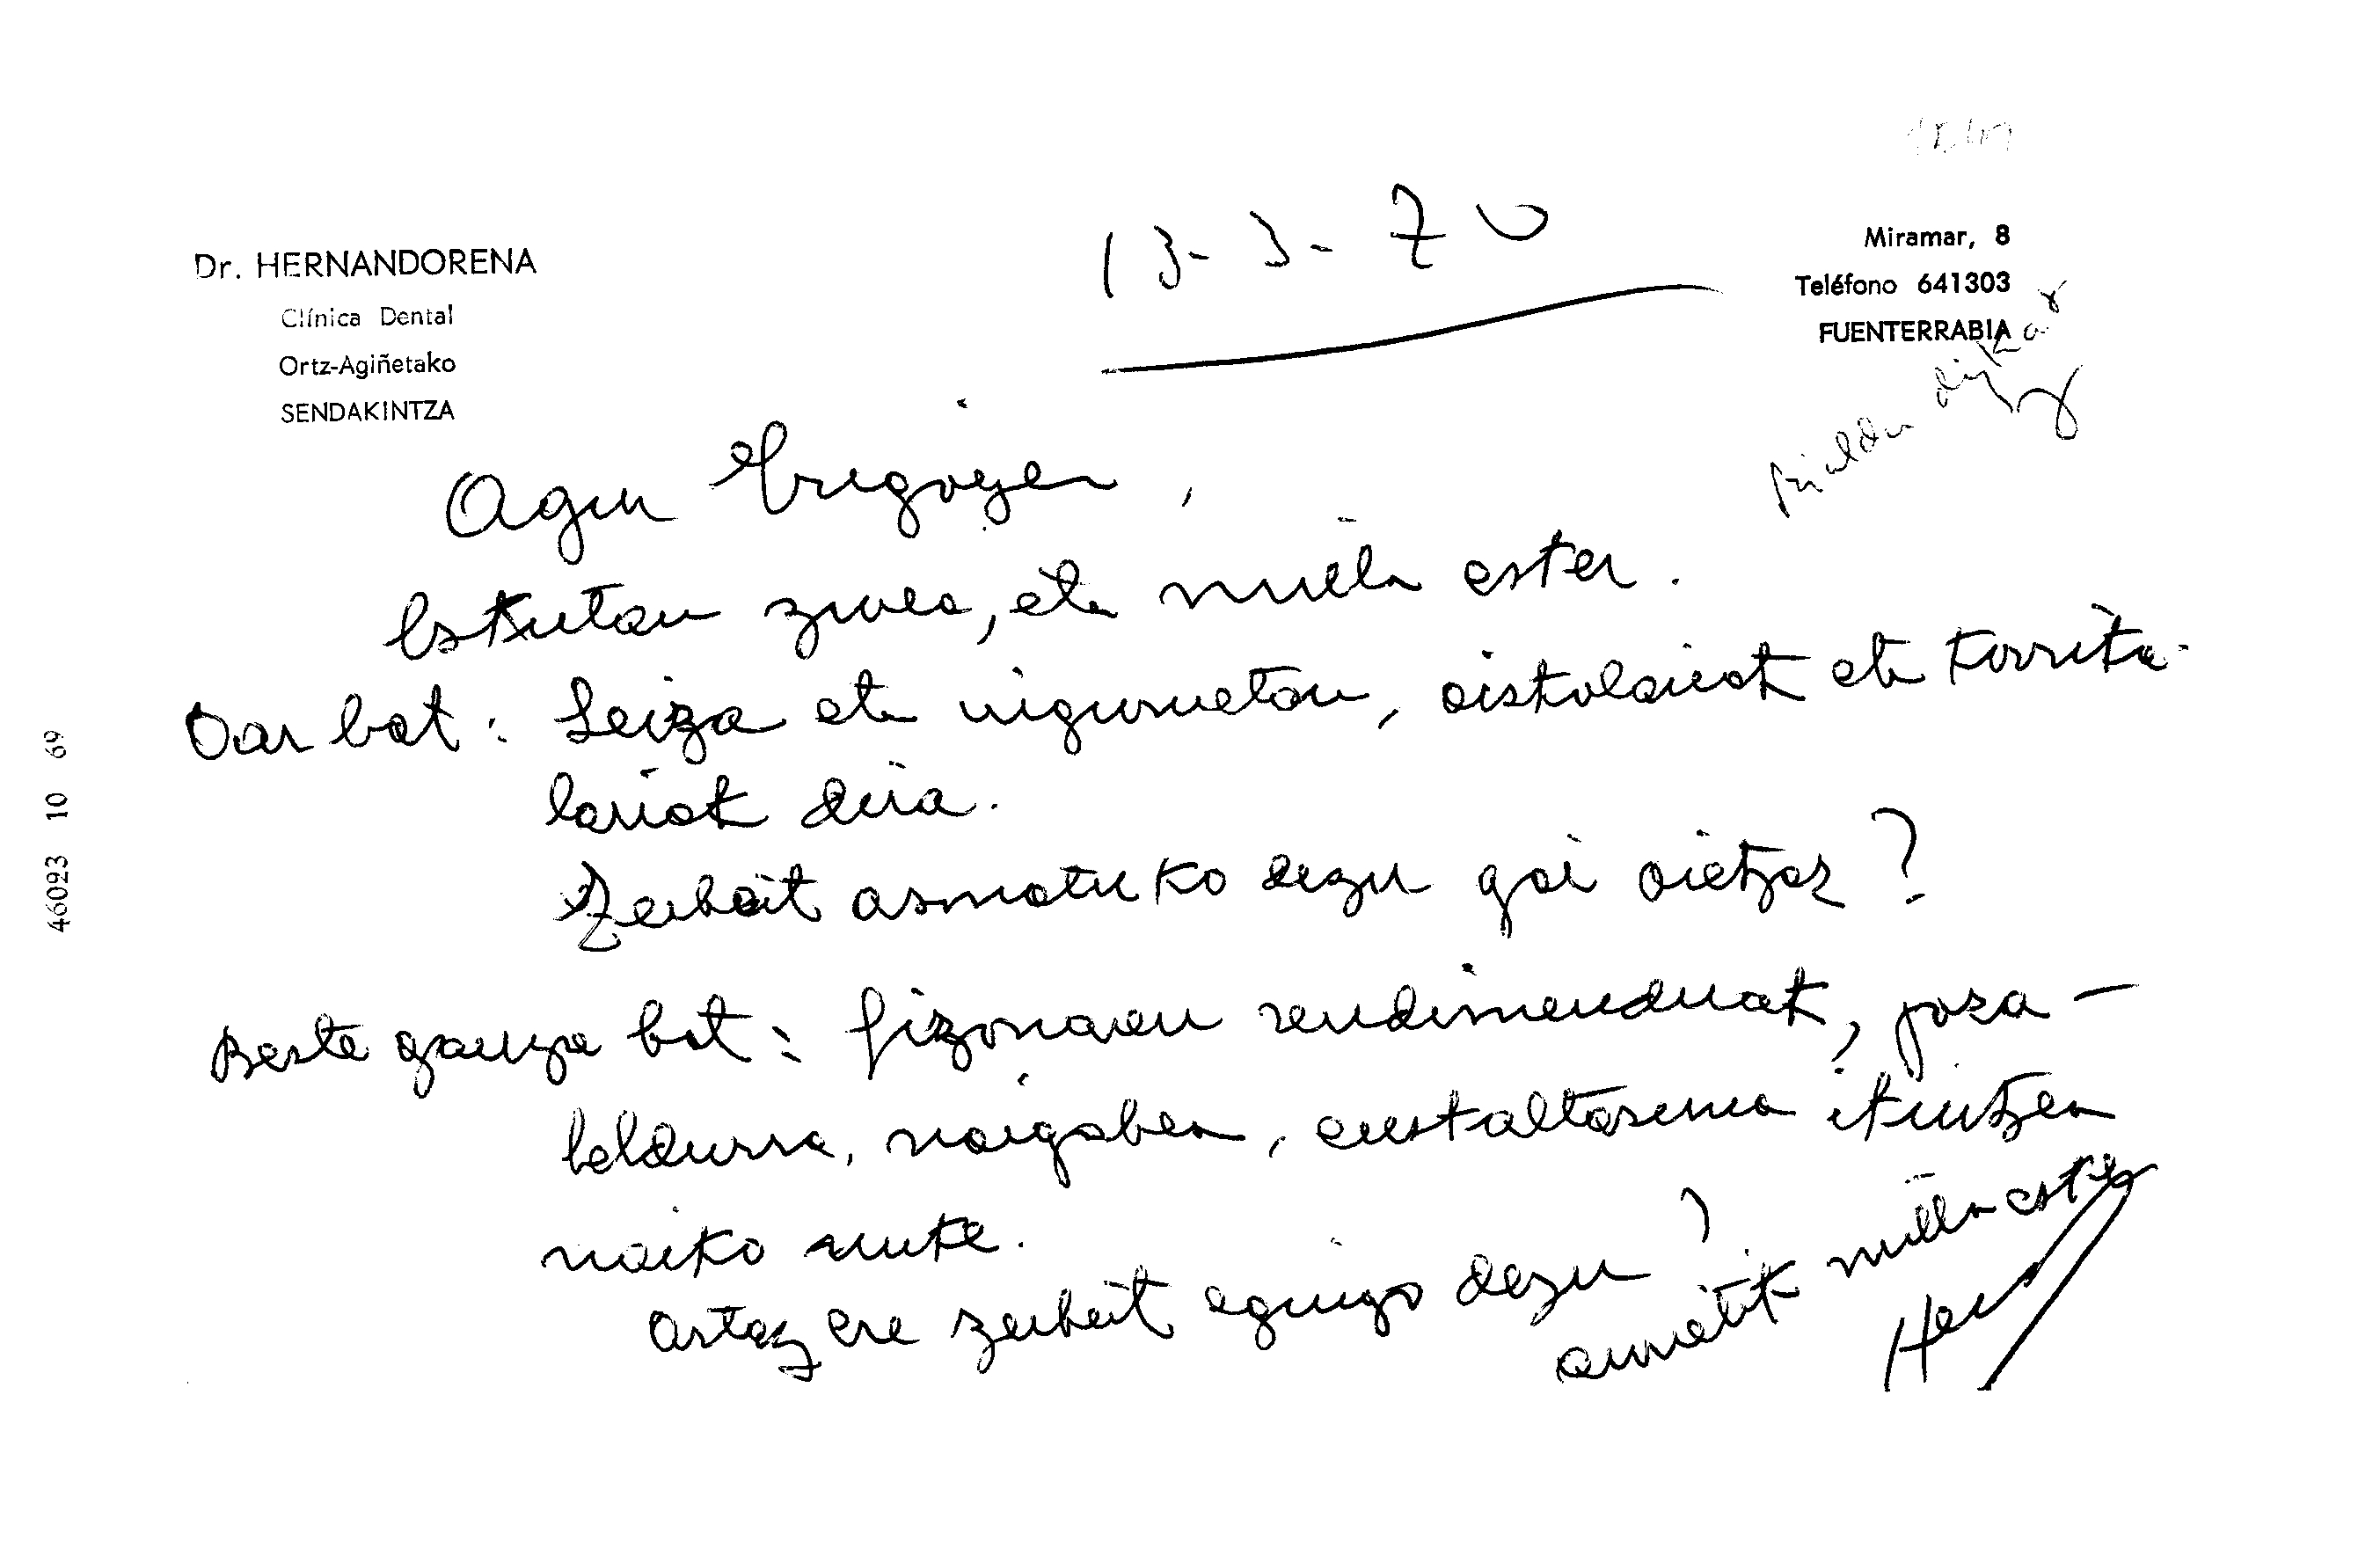 Dr. HERNANDORENA
Clínica Dental
Ortz-Agiñetako
SENDAKINTZA
13-3-70
Miramar, 8
Teléfono 641303
FUENTERRABIA
Agur Irigoyen,
Eskutan zurea, eta milla esker.
Oar bat: Leiza eta inguruetan, aizkolariak eta korrika-
lariak dira.
Zerbait asmatuko dezu gai oietzaz?
Beste gauza bat: gizonaren rendimenduak, poza-
beldurra, naigabea, euskaltasuna
naiko nuke.
Ortaz ere zerbait egingo dezu?
aurretik milla esker
46093 10 69